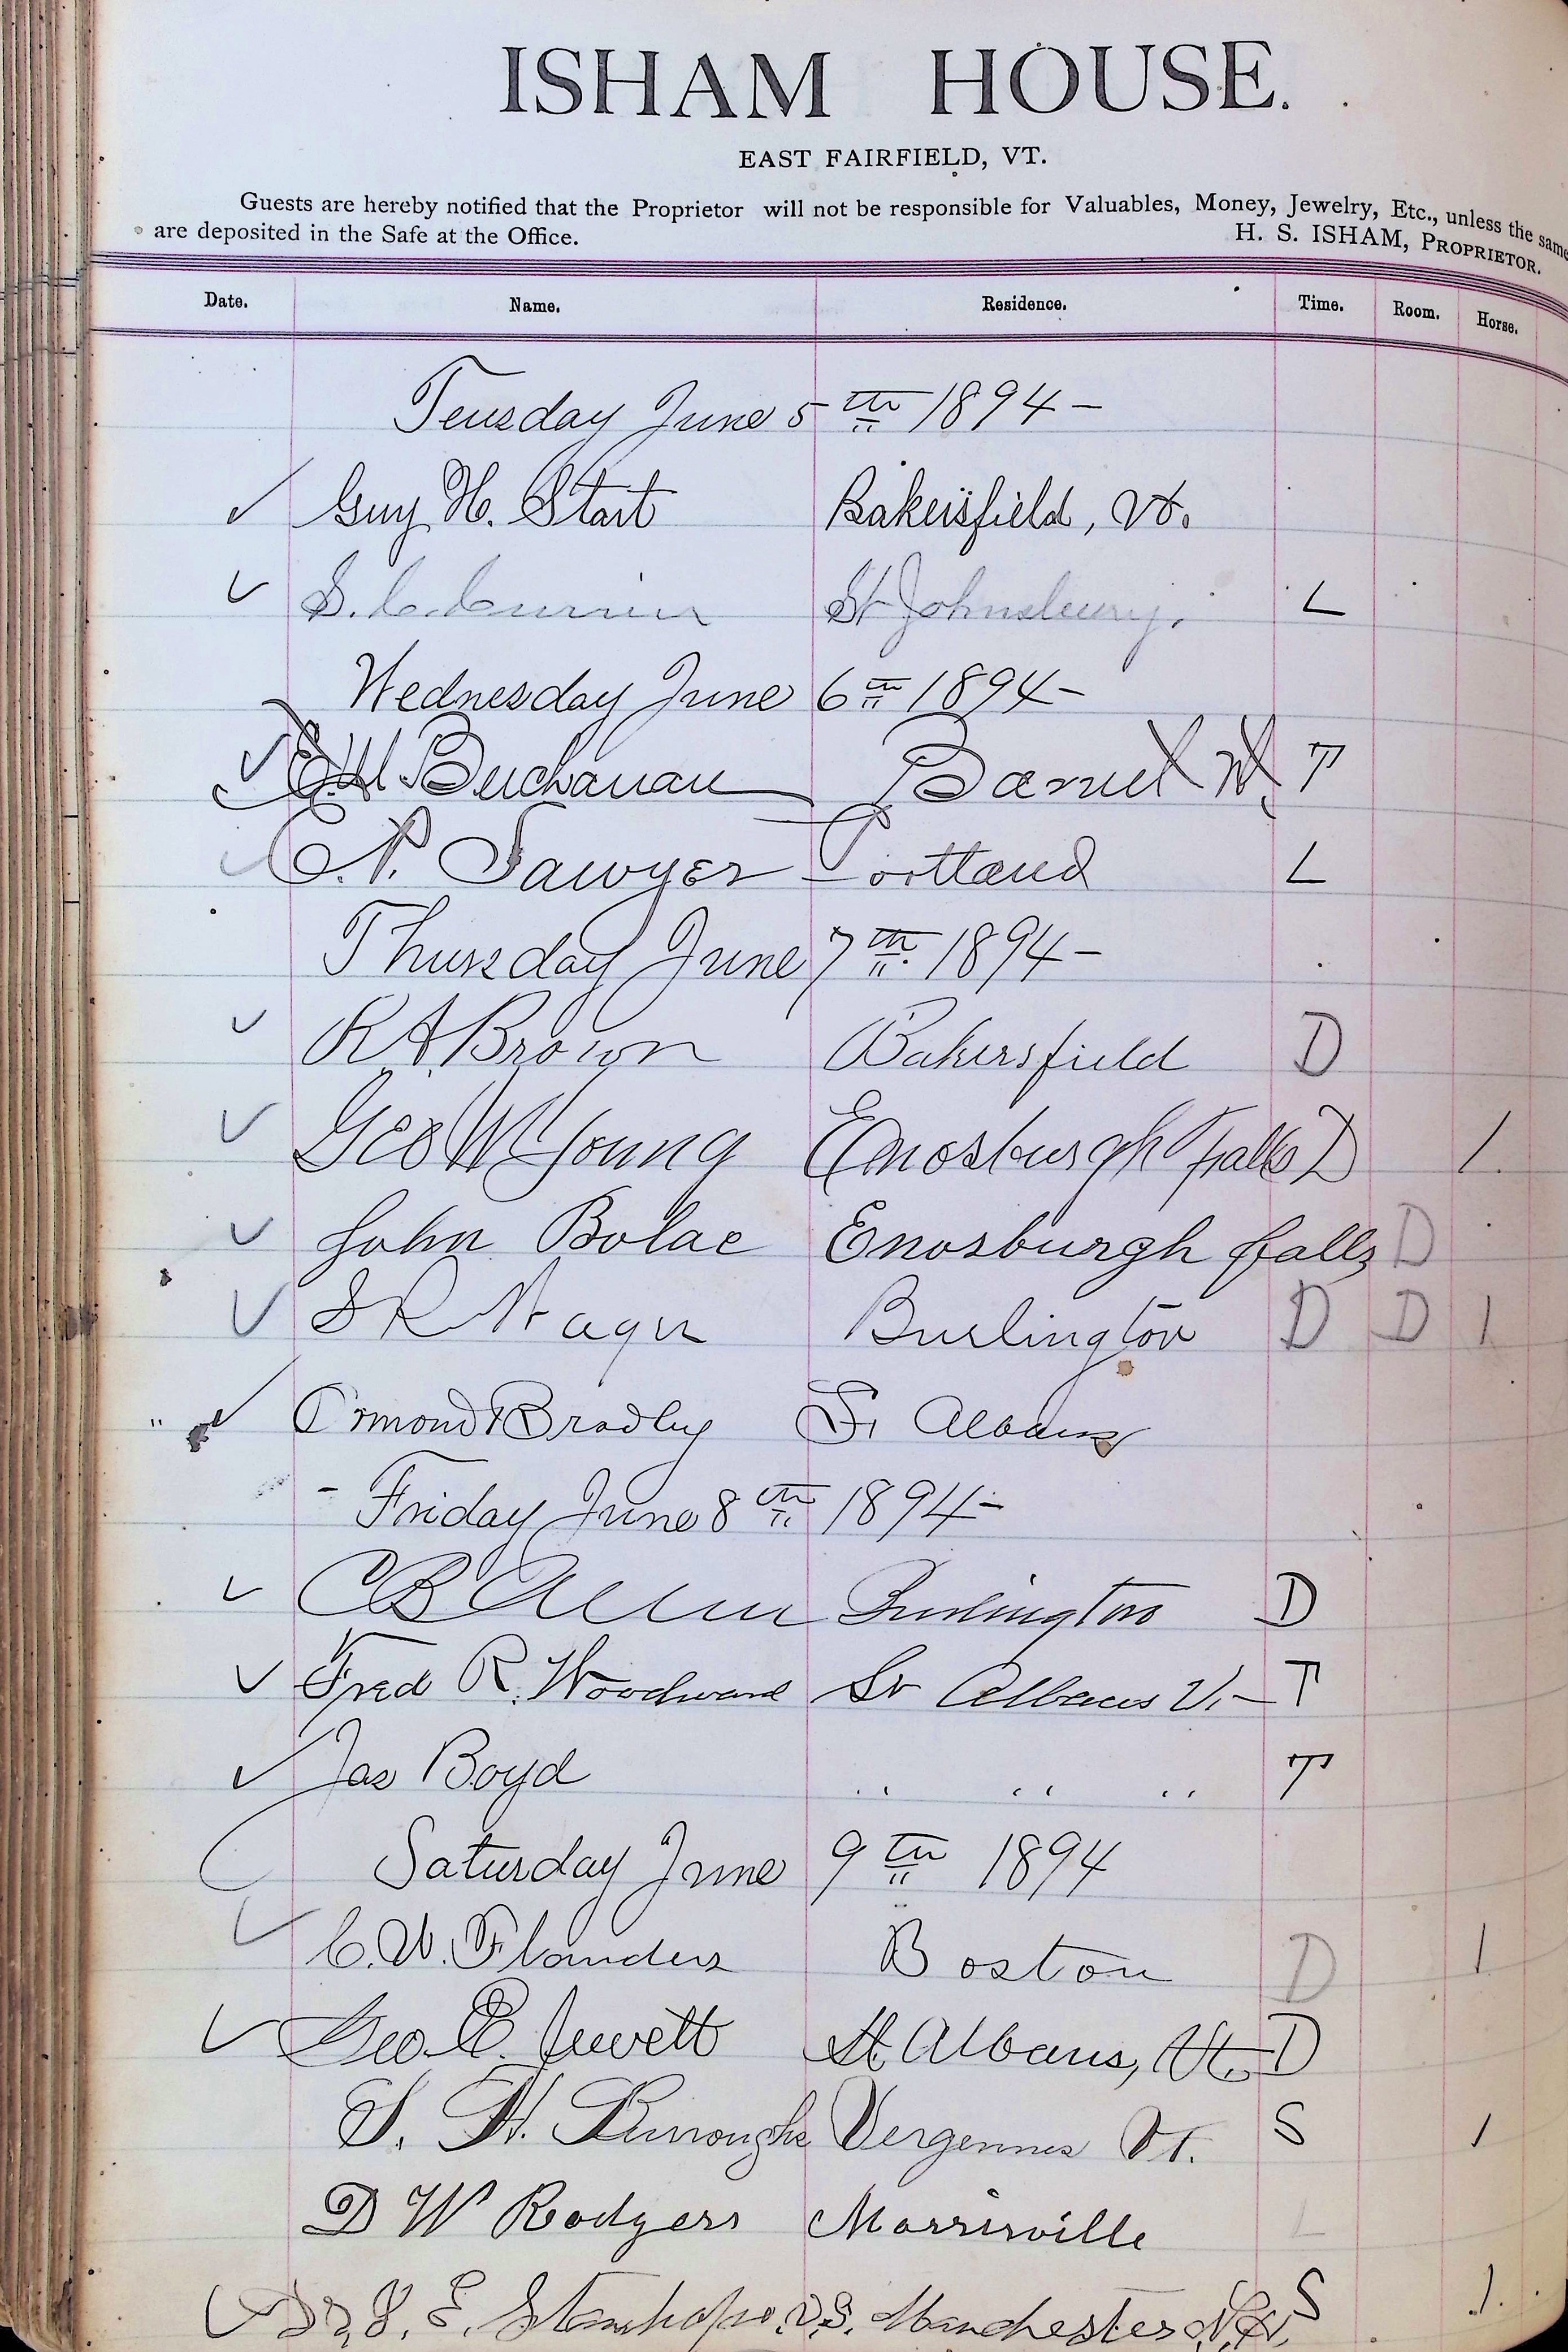 ISHAM HOUSE.
EAST FAIRFIELD, VT.
Guests are hereby notified that the Proprietor will not be responsible for Valuables, Money, Jewelry, Etc., unless the same
are deposited in the Safe at the Office. H. S. ISHAM, PROPRIETOR.
Date. Name. Residence. Time. Room. Horse.
Teusday June 5th 1894 -
✓ Guy H. Start Bakersfield, Vt.
✓ S. C. Currier St Johnsbury. L
Wednesday June 6th 1894 -
✓ Buchanan Vt. T
✓ E. P. Sawyer Portland L
Thursday June 7th 1894 -
✓ R. A. Brown Bakersfield D
✓ Geo W Young Enosburgh Falls D 1.
✓ John Bolac Enosburgh falls D
✓ S R Burlington D D 1
✓ Ormond Bradley St Albans
- Friday June 8th 1894 -
✓ C B Allen Burlington D
✓ Fred R. Woodward St Albans Vt - T
✓ Jas Boyd " " " T
Saturday June 9th 1894
✓ C. W. Flanders Boston D 1
✓ Geo. E. Jewett St. Albans, Vt. D
S. H. Burroughs Vergennes Vt. S 1
D W Rodgers Morrisville L
✓ Dr. E. Stanhope. V.S. Manchester N.H. S 1.